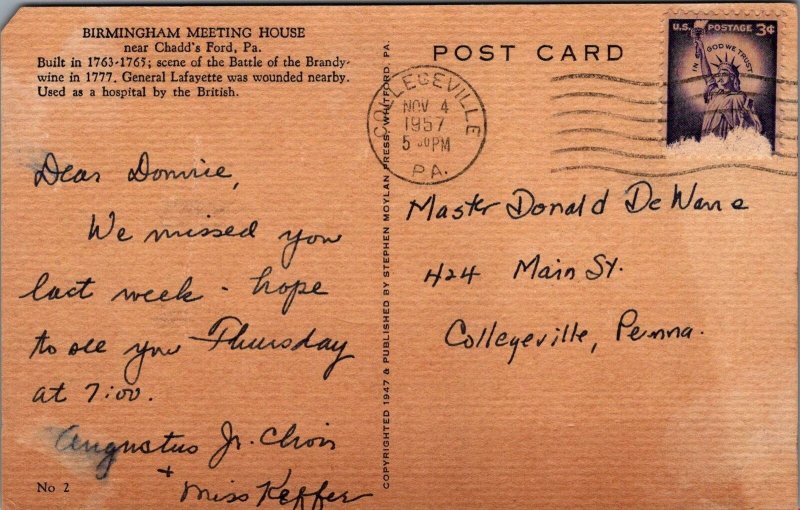 BIRMINGHAM MEETING HOUSE
near Chadd's Ford, Pa.
Built in 1763-1765; scene of the Battle of the Brandy-
wine in 1777. General Lafayette was wounded nearby.
Used as a hospital by the British.
Dear Donnie,
We missed you
last week - hope
to see you Thursday
at 7:00.
Augustus Jr. Choir
+
Miss Keffer
No 2
COPYRIGHTED 1947 & PUBLISHED BY STEPHEN MOYLAN PRESS, WHITFORD, PA.
POST CARD
COLLEGEVILLE
NOV 4
1957
5 30 PM
PA.
U.S. POSTAGE 3¢
IN GOD WE TRUST
Master Donald De Wane
424 Main St.
Collegeville, Penna.